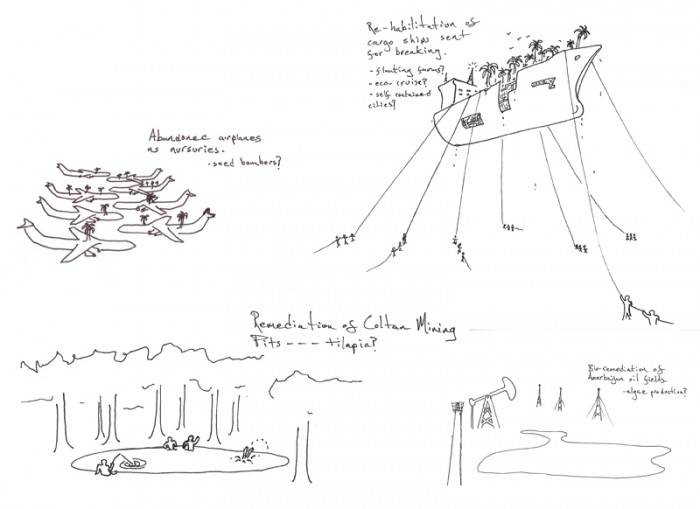 Re-habilitation of
cargo ships sent
for breaking.
- floating farms?
- eco-cruise?
- self contained
cities?
Abandoned airplanes
as nursuries.
- seed bombers?
Remediation of Coltan Mining
Pits - - - tilapia?
Bio-remediation of
Azerbaijan oil fields
- algae production?